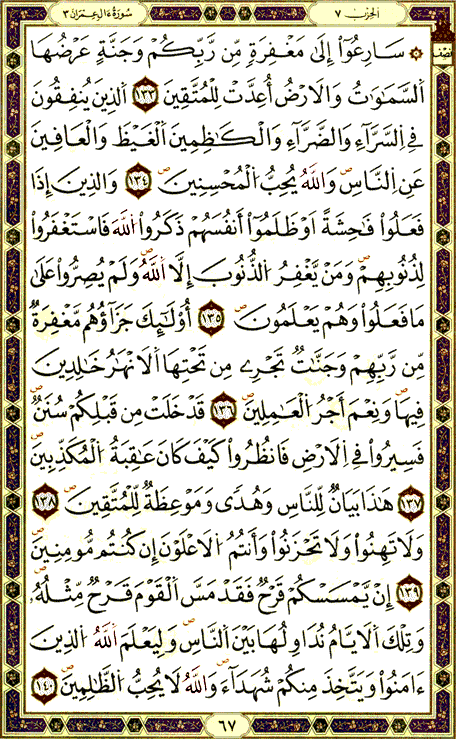 الحزب ٧
سُورَةُ ءَالِ عِمْرَان ٣
نصف
۞ سَارِعُوٓاْ إِلَىٰ مَغْفِرَةٖ مِّن رَّبِّكُمْ وَجَنَّةٍ عَرْضُهَا
اَ۬لسَّمَٰوَٰتُ وَالَارْضُ أُعِدَّتْ لِلْمُتَّقِينَ ١٣٣ اَ۬لذِينَ يُنفِقُونَ
فِے اِ۬لسَّرَّآءِ وَالضَّرَّآءِ وَالْكَٰظِمِينَ اَ۬لْغَيْظَ وَالْعَافِينَ
عَنِ اِ۬لنَّاسِ ص وَاللَّهُ يُحِبُّ اُ۬لْمُحْسِنِينَ ص ١٣٤ وَالذِينَ إِذَا
فَعَلُواْ فَٰحِشَةً اَوْ ظَلَمُوٓاْ أَنفُسَهُمْ ذَكَرُواْ اُ۬للَّهَ فَاسْتَغْفَرُواْ
لِذُنُوبِهِمْ ص وَمَنْ يَّغْفِرُ اُ۬لذُّنُوبَ إِلَّا اَ۬للَّهُ ص وَلَمْ يُصِرُّواْ عَلَىٰ
مَا فَعَلُواْ وَهُمْ يَعْلَمُونَ ص ١٣٥ أُوْلَٰٓئِكَ جَزَآؤُهُم مَّغْفِرَةٞ
مِّن رَّبِّهِمْ وَجَنَّٰتٞ تَجْرِے مِن تَحْتِهَا اَ۬لَانْهَٰرُ خَٰلِدِينَ
فِيهَا ص وَنِعْمَ أَجْرُ اُ۬لْعَٰمِلِينَ ص ١٣٦ قَدْ خَلَتْ مِن قَبْلِكُمْ سُنَنٞ ص
فَسِيرُواْ فِے اِ۬لَارْضِ فَانظُرُواْ كَيْفَ كَانَ عَٰقِبَةُ اُ۬لْمُكَذِّبِينَ ص
١٣٧ هَٰذَا بَيَانٞ لِّلنَّاسِ وَهُديٗ وَمَوْعِظَةٞ لِّلْمُتَّقِينَ ص ١٣٨
وَلَا تَهِنُواْ وَلَا تَحْزَنُواْ وَأَنتُمُ اُ۬لَاعْلَوْنَ إِن كُنتُم مُّومِنِينَ ص
١٣٩ إِنْ يَّمْسَسْكُمْ قَرْحٞ فَقَدْ مَسَّ اَ۬لْقَوْمَ قَرْحٞ مِّثْلُهُۥ ص
وَتِلْكَ اَ۬لَايَّامُ نُدَاوِلُهَا بَيْنَ اَ۬لنَّاسِ ص وَلِيَعْلَمَ اَ۬للَّهُ اُ۬لذِينَ
ءَامَنُواْ وَيَتَّخِذَ مِنكُمْ شُهَدَآءَ ص وَاللَّهُ لَا يُحِبُّ اُ۬لظَّٰلِمِينَ ص ١٤٠
٦٧